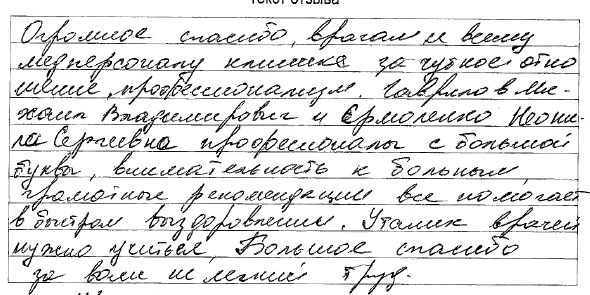 Текст отзыва
Огромное спасибо, врачам и всему
медперсоналу клиники за чуткое отно
шение, профессионализм. Гаврилов Ми-
хаил Владимирович и Ермоленко Неони-
ла Сергеевна профессионалы с большой
буквы, внимательность к больным,
грамотные рекомендации все помогает
в быстром выздоровлении. У таких врачей
нужно учиться, Большое спасибо
за вами не легкий труд.